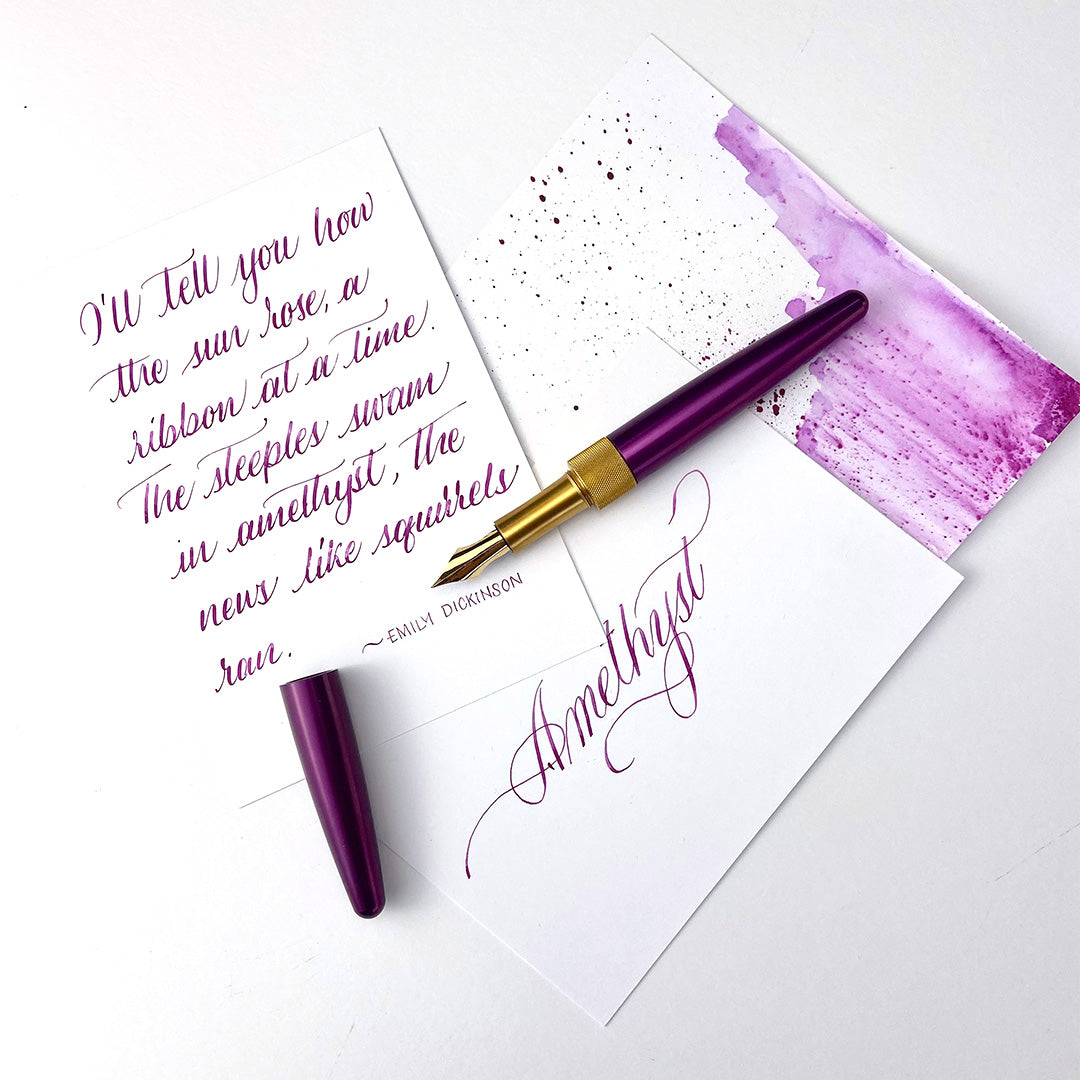 I'll tell you how
the sun rose, a
ribbon at a time.
The steeples swam
in amethyst, the
news like squirrels
ran.
~EMILY DICKINSON
Amethyst